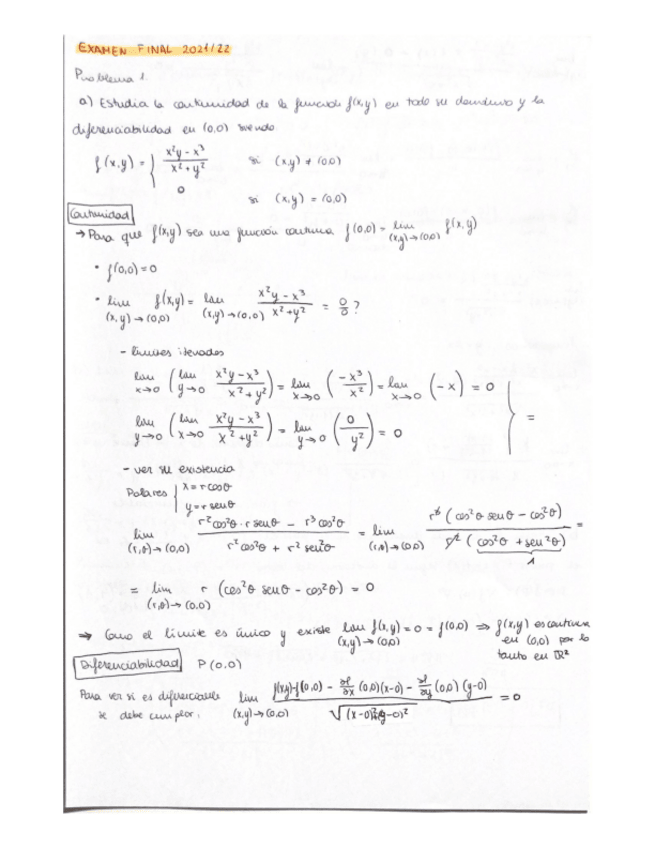 EXAMEN FINAL 2021/22
Problema 1.
a) Estudia la continuidad de la función f(x,y) en todo su dominio y la
diferenciabilidad en (0,0) siendo
f(x,y) = { (x²y - x³)/(x²+y²) si (x,y) ≠ (0,0)
0 si (x,y) = (0,0)
Continuidad
→ Para que f(x,y) sea una función continua f(0,0) = lim (x,y)→(0,0) f(x,y)
• f(0,0)=0
• lim (x,y)→(0,0) f(x,y) = lim (x,y)→(0,0) (x²y - x³)/(x²+y²) = 0/0 ?
- límites iterados
lim x→0 (lim y→0 (x²y-x³)/(x²+y²)) = lim x→0 (-x³/x²) = lim x→0 (-x) = 0
lim y→0 (lim x→0 (x²y-x³)/(x²+y²)) = lim y→0 (0/y²) = 0 } =
- ver su existencia
Polares { x=r cosθ
y=r senθ
lim (r,θ)→(0,0) (r²cos²θ · r senθ - r³cos²θ)/(r²cos²θ + r² sen²θ) = lim (r,θ)→(0,0) r³(cos²θ senθ - cos²θ)/(r²(cos²θ + sen²θ)) =
1
= lim (r,θ)→(0,0) r (cos²θ senθ - cos²θ) = 0
⇒ Como el límite es único y existe lim (x,y)→(0,0) f(x,y) = 0 = f(0,0) ⇒ f(x,y) es continua
en (0,0) por lo
tanto en ℝ²
Diferenciabilidad P(0,0)
Para ver si es diferenciable lim (x,y)→(0,0) (f(x,y)-f(0,0) - ∂f/∂x (0,0)(x-0) - ∂f/∂y (0,0)(y-0))/√((x-0)²+(y-0)²) = 0
se debe cumplir: